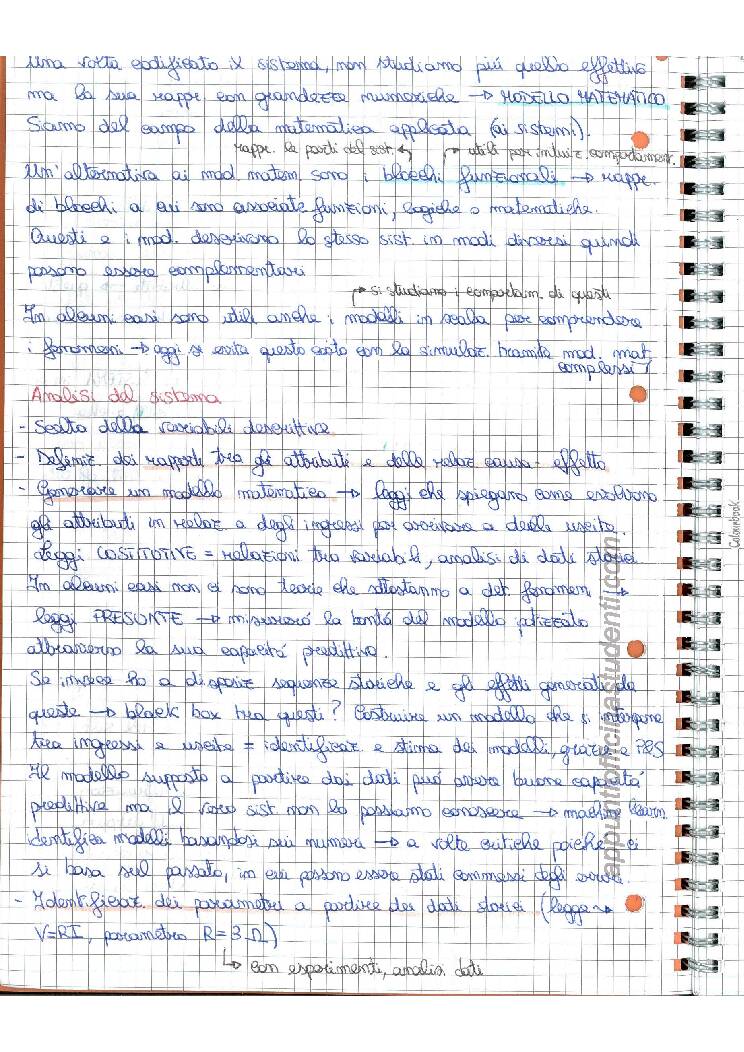 Una volta codificato il sistema, non studiamo più quello effettivo
ma la sua rappr. con grandezze numeriche → MODELLO MATEMATICO
Siamo del campo della matematica applicata (ai sistemi).
rappr. le parti del sist. ↰ ↱ utili per intuiz. comportament.
Un'alternativa ai mod. matem. sono i blocchi funzionali → rappr.
di blocchi a cui sono associate funzioni, logiche o matematiche.
Questi e i mod. descrivono lo stesso sist. in modi diversi quindi
possono essere complementari
↱ si studiamo i comportam. di questi
In alcuni casi sono utili anche i modelli in scala per comprendere
i fenomeni → oggi si evita questo costo con la simulaz. tramite mod. mat.
complessi
Analisi del sistema
- Scelta della variabili descrittive
- Definiz. dei rapporti tra gli attributi e delle relaz causa-effetto
- Generare un modello matematico → leggi che spiegano come evolvono
gli attributi in relaz a degli ingressi per arrivare a delle uscite.
Leggi COSTITUTIVE = relazioni tra variabili, analisi di dati storici
In alcuni casi non ci sono teorie che sottostanno a det. fenomeni →
leggi PRESUNTE → misurerò la bontà del modello ipotizzato
attraverso la sua capacità predittiva.
Se invece ho a disposiz sequenze storiche e gli effetti generati da
queste → black box tra questi? Costruire un modello che si interpone
tra ingressi e uscite = identificaz e stima dei modelli, grazie a
Il modello supposto a partire dai dati può avere buone capacità
predittive ma il vero sist non lo possiamo conoscere → machine learn.
identifica modelli basandosi sui numeri → a volte critiche poiché ci
si basa sul passato, in cui possono essere stati commessi degli errori.
- Identificaz. dei parametri a partire dei dati storici (legge →
V=RI, parametro R=3 Ω)
↳ con esperimenti, analisi dati
Colourbook
appuntiofficinastudenti.com